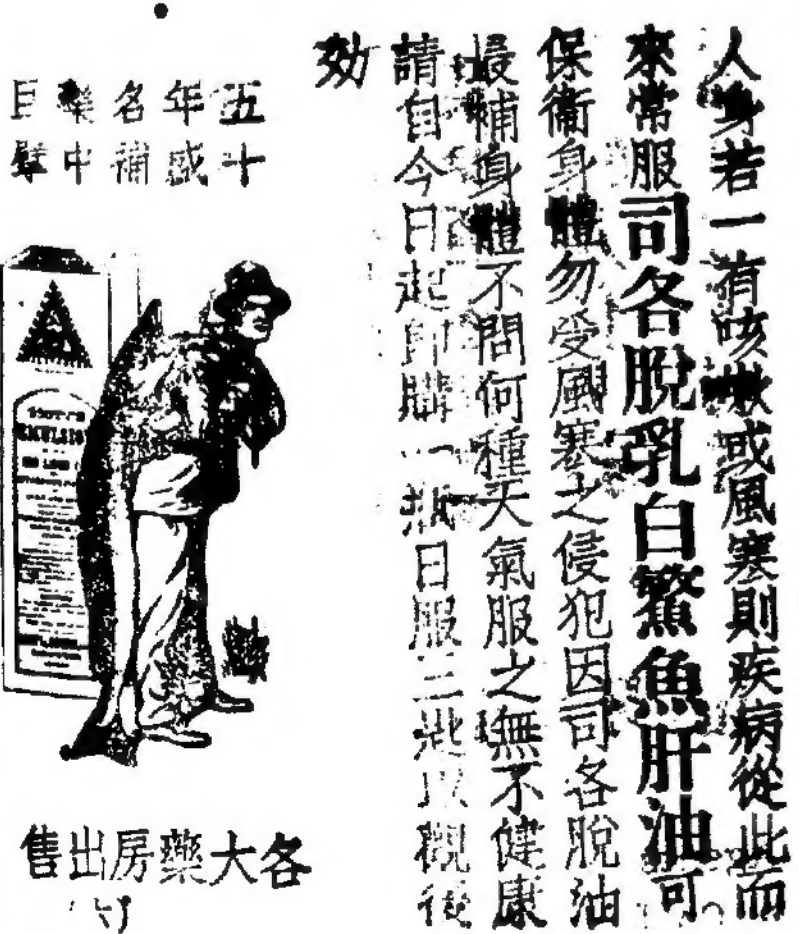 人身若一有咳嗽或風寒則疾病從此而
來常服司各脫乳白鰵魚肝油可
保衞身體勿受風寒之侵犯因司各脫油
最補身體不問何種天氣服之無不健康
請自今日起卽購一瓶日服三匙以觀後
効
五十
年盛
名補
藥中
巨擘
SCOTT'S
EMULSION
各大藥房出售